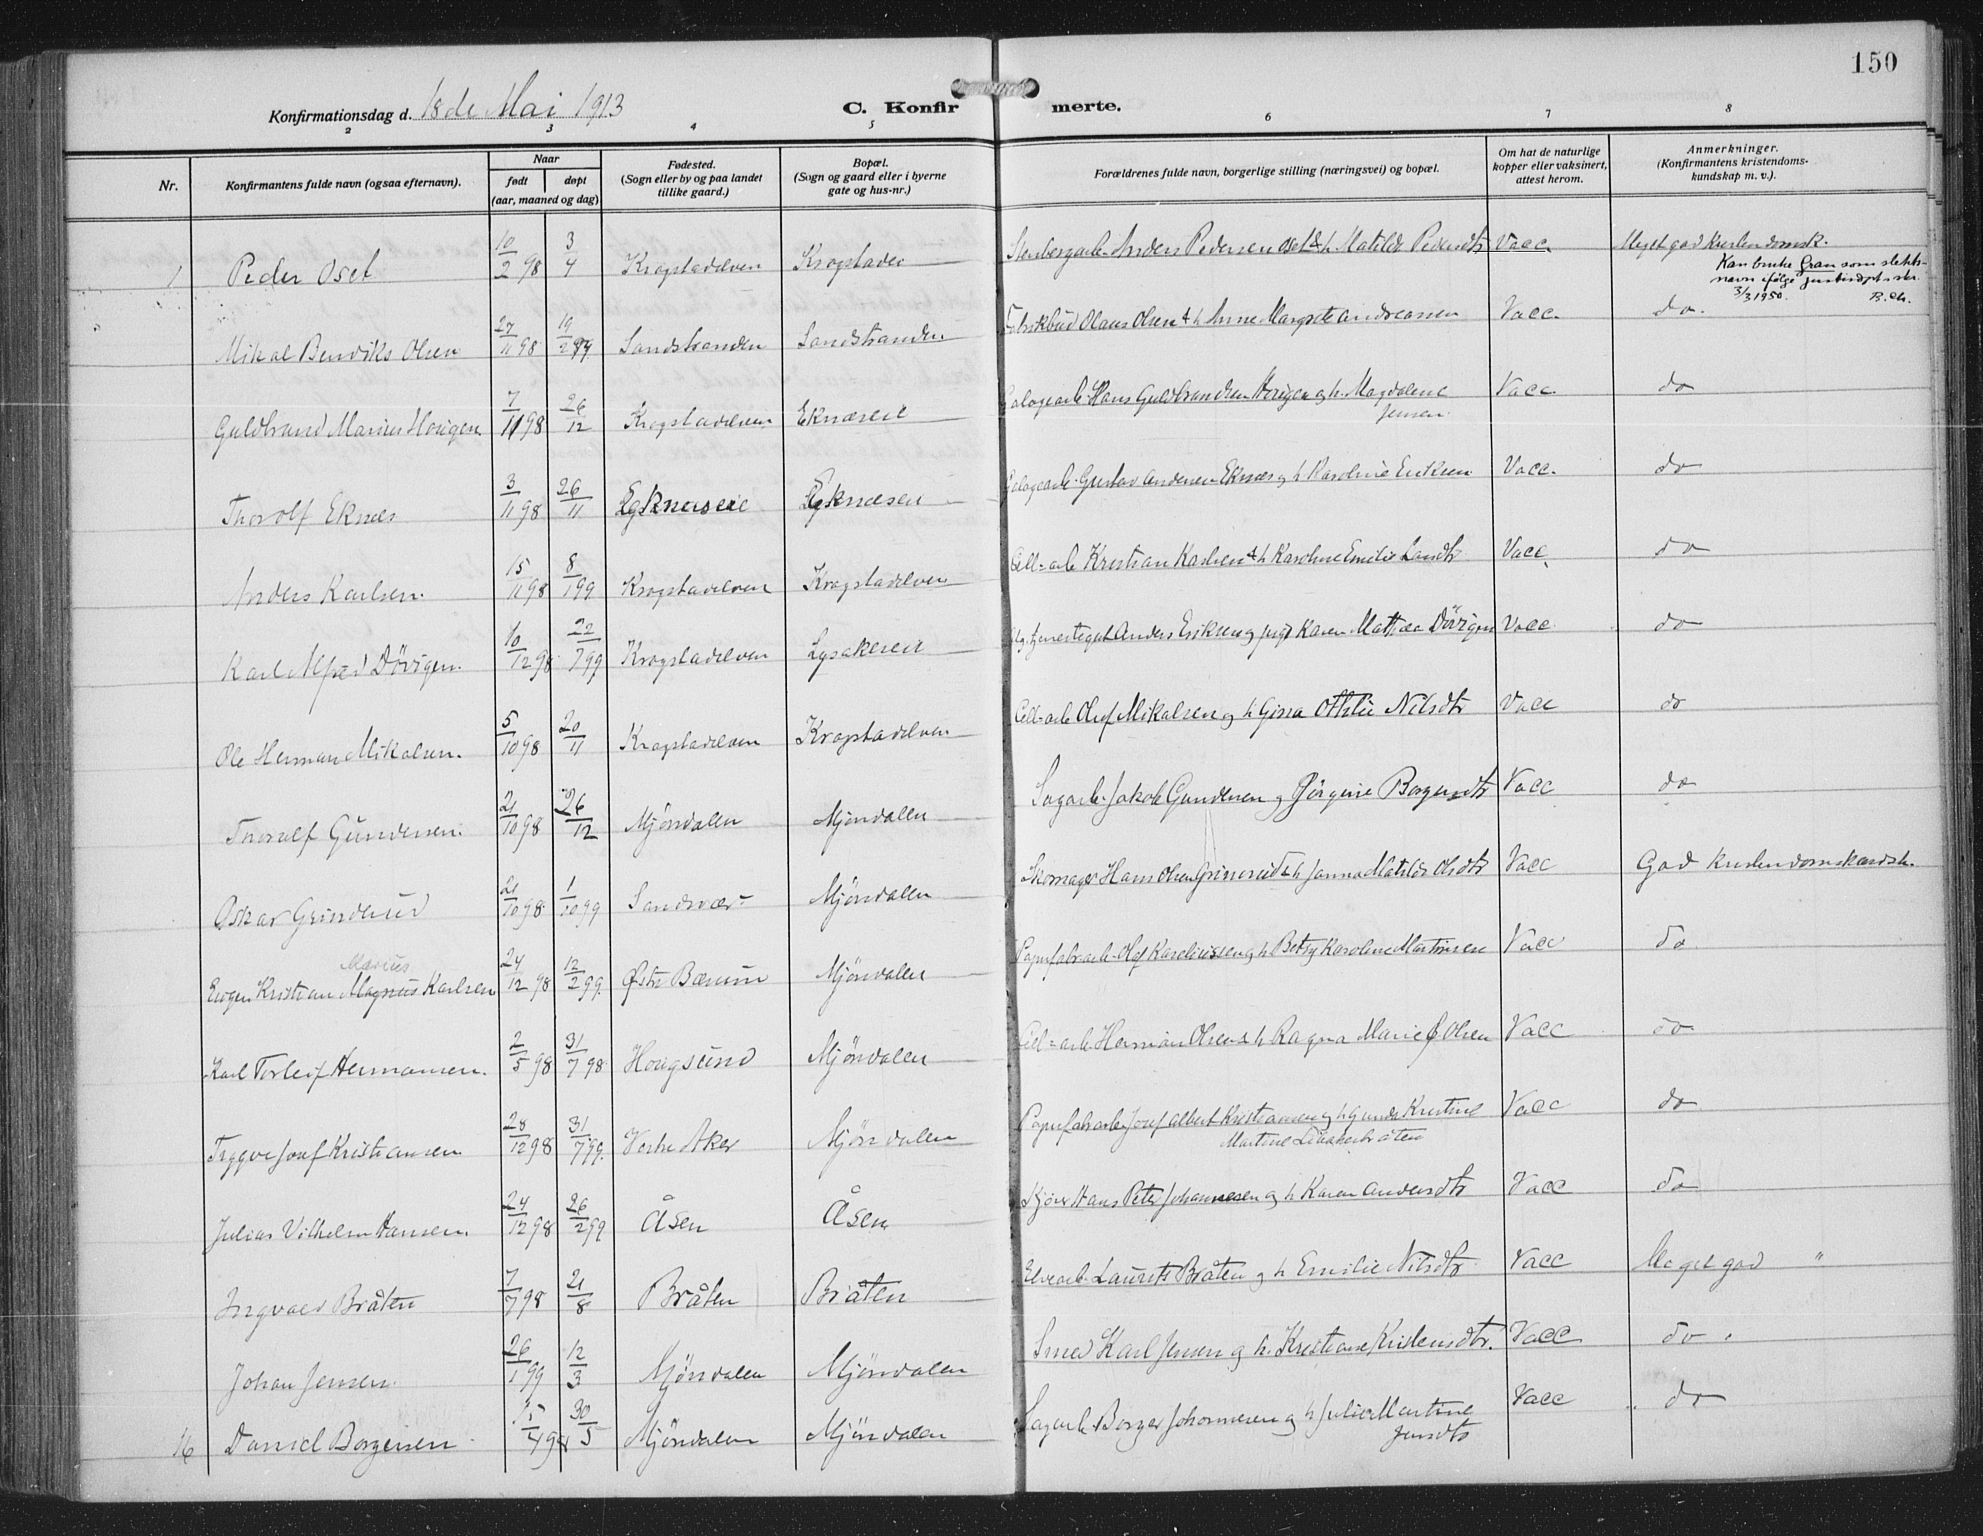 150
Konfirmationsdag d. 18de Mai 1913
C. Konfirmerte.
2 3 4 5 6 7 8
Nr.
Konfirmantens fulde navn (ogsaa efternavn).
Naar
født døpt
(aar, maaned og dag)
Fødested.
(Sogn eller by og paa landet
tillike gaard.)
Bopæl.
(Sogn og gaard eller i byerne
gate og hus-nr.)
Forældrenes fulde navn, borgerlige stilling (næringsvei) og bopæl.
Om hat de naturlige
kopper eller vaksinert,
attest herom.
Anmerkninger.
(Konfirmantens kristendoms-
kundskap m. v.).
1 Peder Oset 10/2 98 3/4 Krogstadelven Anders Pedersen Oset & h Matilde Pedersdtr Vacc Meget god Kristendomsk.
Kan bruke Gran som slekts-
navn ifølge
3/3 1950.
Mikal Bendiks Olsen 27/11 98 19/2 99 Sandstranden Sandstranden Olaus Olsen & h Anne Margrete Andreassen Vacc. do.
Guldbrand Marius Hougen 7/11 98 26/12 Krogstadelven Eknæseie Hans Guldbrandsen Hougen og h. Magdalene Vacc. do
Jensen.
Thorolf Eknæs 3/11 98 26/11 Gustav Andersen Eknæs og h Karoline Eriksen Vacc. do
Anders Karlsen. 15/11 98 8/1 99 Krogstadelven Krogstadelven Cell-arb Kristian Karlsen & h Karoline Emilie Vacc. do
Karl Alfred Dövigen. 10/12 98 22/7 99 Krogstadelven Lysakereie Anders Eriksen og Karen Dövigen Vacc. do
Ole Herman Mikalsen. 5/10 98 20/11 Krogstadelven Krogstadelven Cell-arb Olof Mikalsen og h Gina Otthlie Nilsdtr Vacc do
Thoralf Gundersen. 21/10 98 26/12 Mjöndalen Mjöndalen Sagarb. Jakob Gundersen og Jörgine Borgersdtr Vacc do
Oskar Grinderud 21/10 98 1/10 99 Sandsvær Mjöndalen Skomager Hans Olsen & h Janna Matilde Olsdtr Vacc God kristendomskundsk.
Marius
Eugen Kristian Magnus Karlsen 24/12 98 12/2 99. Østre Bærum Mjöndalen Papirfabrarb. Olaf og h Betsy Karoline Martinsen Vacc do
Karl Torleif Hermansen. 2/5 98 31/7 98 Hougsund Mjöndalen Cel-arb Herman Olsen & h Ragna Marie Olsen Vacc do
Trygve Josef Kristiansen 28/12 98 31/7 99. Vestre Aker Mjöndalen Papirfabrarb. Josef Albert Kristiansen og h Gunda Kristine Vacc do
Martine
Julius Vilhelm Hansen. 24/12 98 26/2 99 Åsen Åsen Kjörer Hans Peter Johannesen og h Karen Andersdtr Vacc do
Ingvald Bråten 7/7 98 21/8 Bråten Bråten Elvearb. Laurits Bråten og h Emilie Nilsdtr. Vacc Meget god "
Johan Jensen. 26/1 99 12/3 Mjöndalen Mjöndalen Smed Karl Jensen og h. Kristiane Kristensdtr. Vacc do.
16 Daniel Borgersen 30/5 Mjöndalen Mjöndalen Sagarb. Borger Johannesen og h Julie Martine Vacc do
Jensdtr